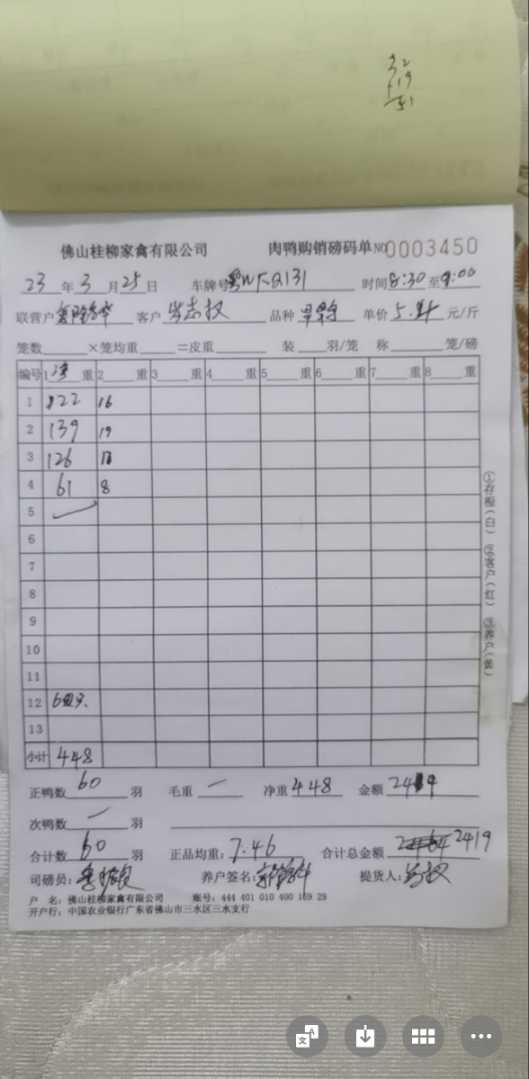 32
+19
51
佛山桂柳家禽有限公司 肉鸭购销磅码单 NO0003450
23年3月25日 车牌号粤WK2131 时间8:30至9:00
联营户 客户 品种 单价5.4元/斤
笼数 ×笼均重 =皮重 装 羽/笼 称 笼/磅
编号 1净重 2 重 3 重 4 重 5 重 6 重 7 重 8 重
1 122 16
2 139 19
3 126
4 61 8
5
6
7
8
9
10
11
12
13
小计 448
正鸭数60羽 毛重 净重448 金额2419
次鸭数 羽
合计数60羽 正品均重:7.46 合计总金额 2419
司磅员: 养户签名: 提货人:
户 名:佛山桂柳家禽有限公司 账号:444 401 010 400 169 29
开户行:中国农业银行广东省佛山市三水区三水支行
①存根(白) ②客户(红) ③养户(黄)